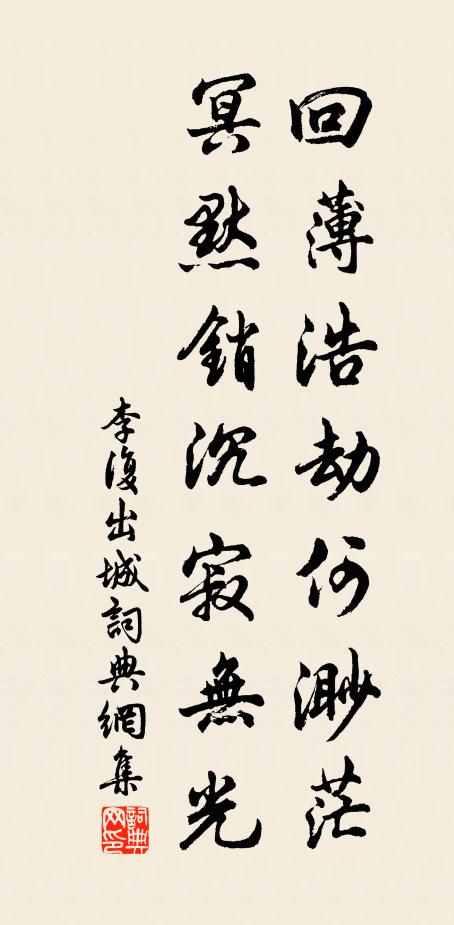 回薄浩劫何渺茫
冥默銷沉寂無光
李復出城詞典網集
詞典网印